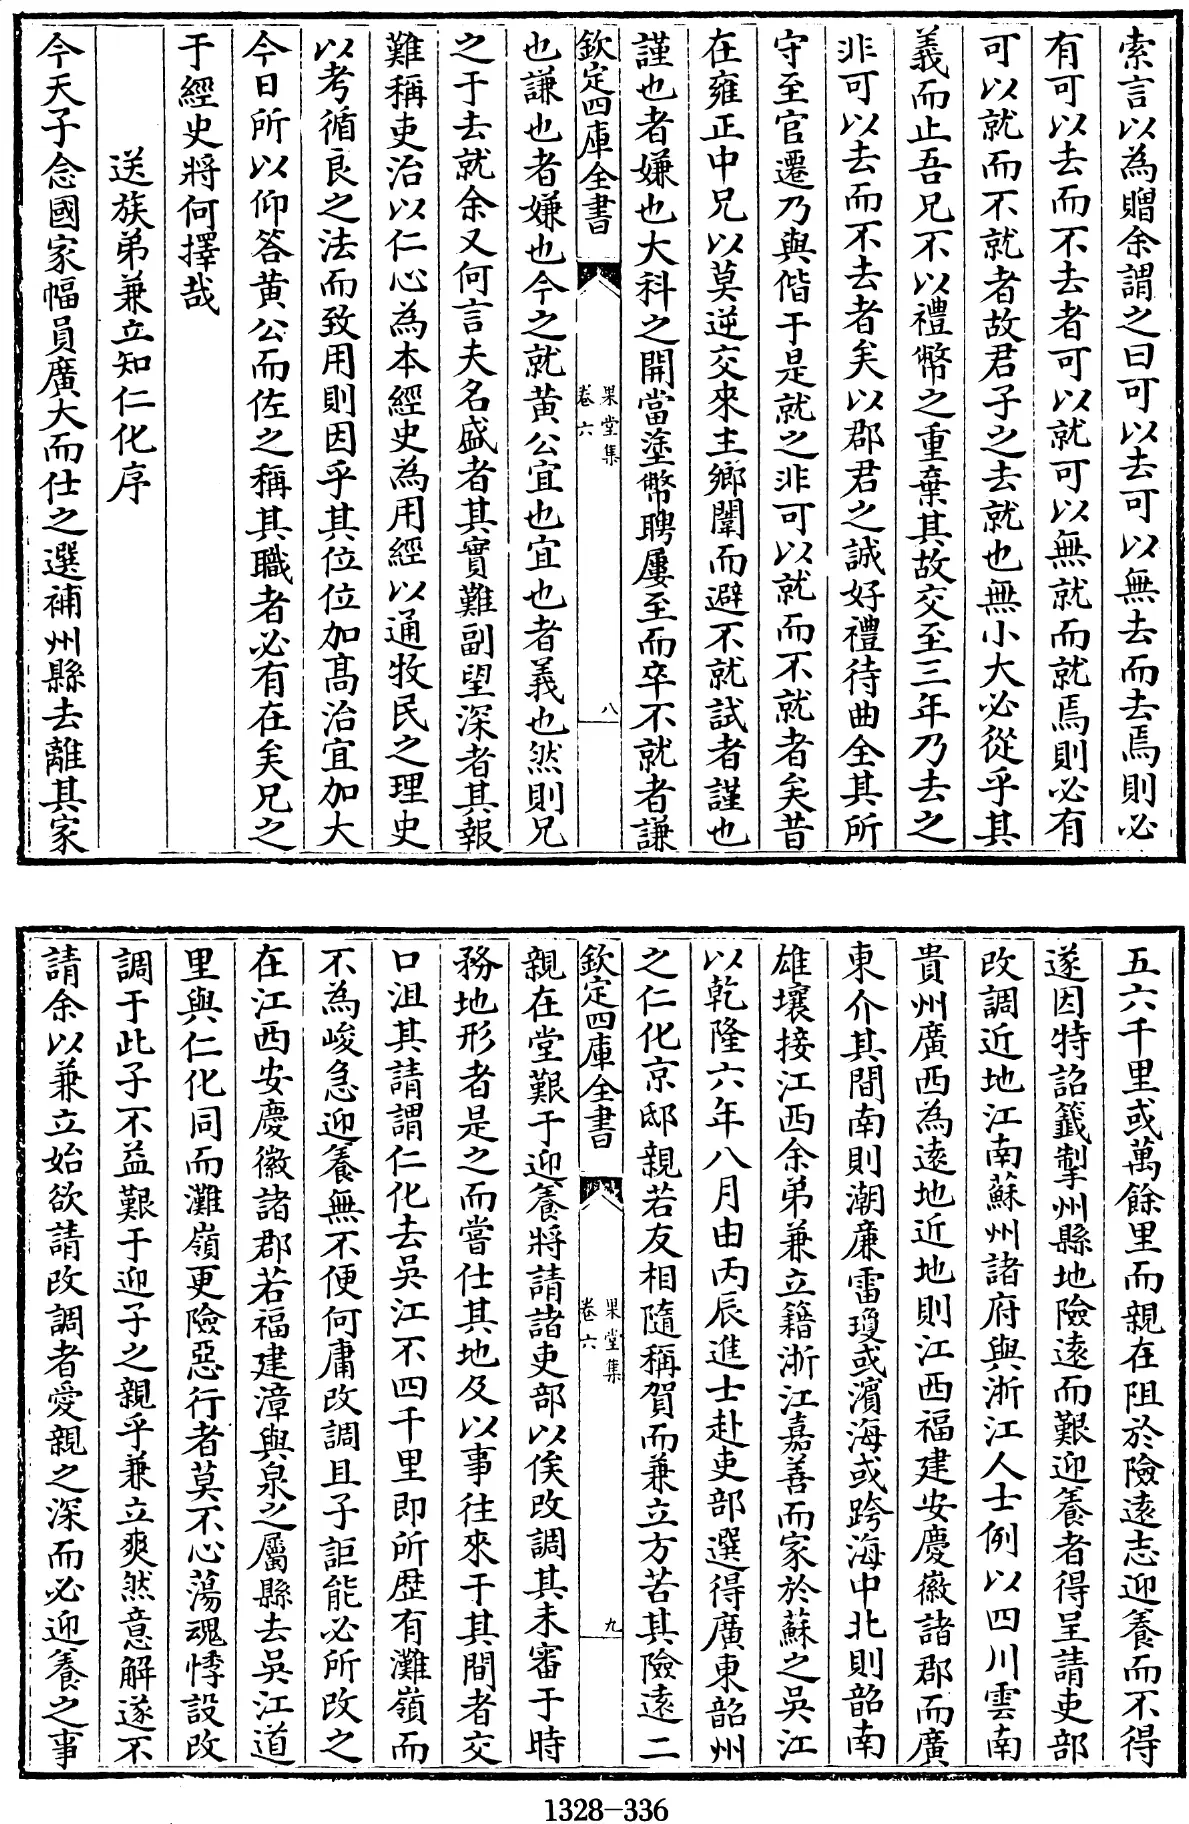 索言以為贈余謂之曰可以去可以無去而去焉則必
有可以去而不去者可以就可以無就而就焉則必有
可以就而不就者故君子之去就也無小大必從乎其
義而止吾兄不以禮幣之重棄其故交至三年乃去之
非可以去而不去者矣以郡君之誠好禮待曲全其所
守至官遷乃與偕于是就之非可以就而不就者矣昔
在雍正中兄以莫逆交來主鄉闈而避不就試者謹也
謹也者嫌也大科之開當塗幣聘屢至而卒不就者謙
欽定四庫全書
果堂集
卷六
八
也謙也者嫌也今之就黄公宜也宜也者義也然則兄
之于去就余又何言夫名盛者其實難副望深者其報
難稱吏治以仁心為本經史為用經以通牧民之理史
以考循良之法而致用則因乎其位位加高治宜加大
今日所以仰答黄公而佐之稱其職者必有在矣兄之
于經史將何擇哉
送族弟兼立知仁化序
今天子念國家幅員廣大而仕之選補州縣去離其家
五六千里或萬餘里而親在阻於險遠志迎養而不得
遂因特詔籤掣州縣地險遠而艱迎養者得呈請吏部
改調近地江南蘇州諸府與浙江人士例以四川雲南
貴州廣西為遠地近地則江西福建安慶徽諸郡而廣
東介其間南則潮廉雷瓊或濱海或跨海中北則韶南
雄壤接江西余弟兼立籍浙江嘉善而家於蘇之吳江
以乾隆六年八月由丙辰進士赴吏部選得廣東韶州
之仁化京邸親若友相隨稱賀而兼立方苦其險遠二
欽定四庫全書
果堂集
卷六
九
親在堂艱于迎養將請諸吏部以俟改調其未審于時
務地形者是之而嘗仕其地及以事往來于其間者交
口沮其請謂仁化去吳江不四千里即所歷有灘嶺而
不為峻急迎養無不便何庸改調且子詎能必所改之
在江西安慶徽諸郡若福建漳與泉之屬縣去吳江道
里與仁化同而灘嶺更險惡行者莫不心蕩魂悸設改
調于此子不益艱于迎子之親乎兼立爽然意解遂不
請余以兼立始欲請改調者愛親之深而必迎養之事
1328-336